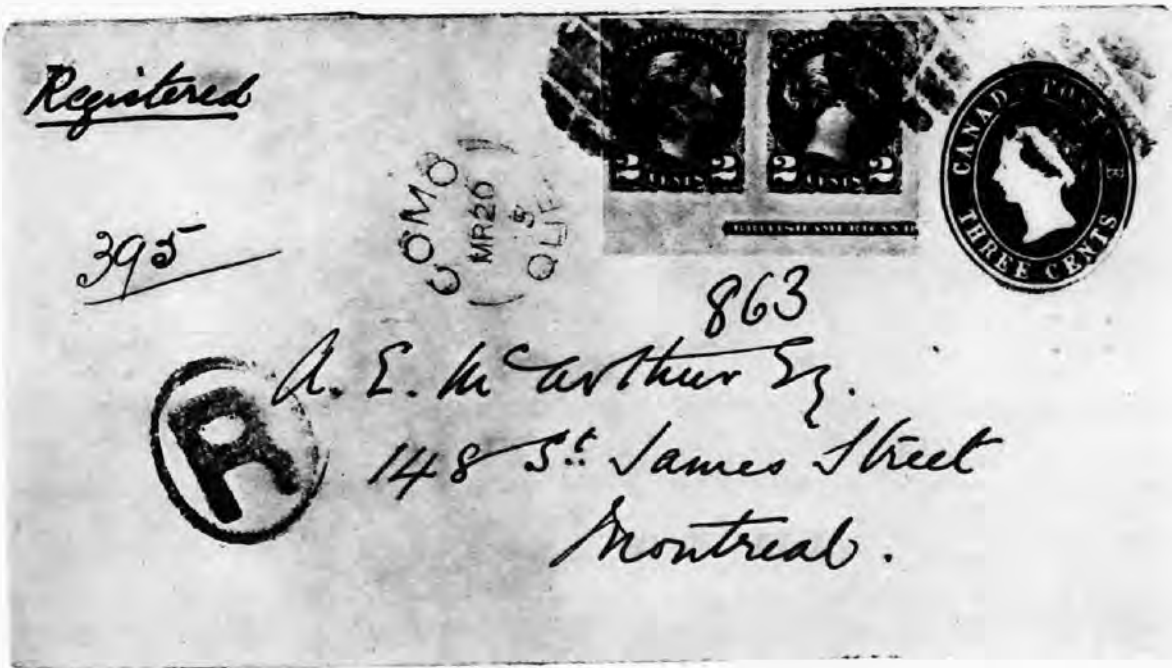 Registered
395
COMO
MR 20
5
QUE
2 CENTS 2
2 CENTS 2
BRITISH AMERICAN B
CANAD POST E
THREE CENTS
863
R
A. E. McArthur Eq.
148 St. James Street
Montreal.